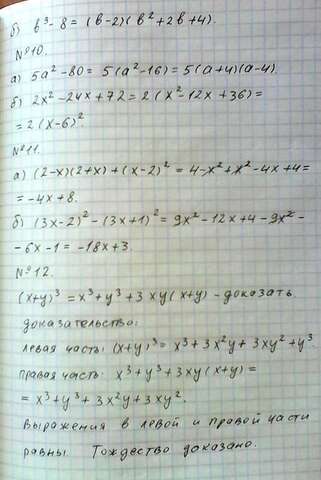 б) b³-8=(b-2)(b²+2b+4).
№10.
а) 5a²-80=5(a²-16)=5(a+4)(a-4).
б) 2x²-24x+72=2(x²-12x+36)=
=2(x-6)².
№11.
а) (2-x)(2+x)+(x-2)²=4-x²+x²-4x+4=
=-4x+8.
б) (3x-2)²-(3x+1)²=9x²-12x+4-9x²-
-6x-1=-18x+3.
№12.
(x+y)³=x³+y³+3xy(x+y)-доказать.
доказательство:
левая часть: (x+y)³=x³+3x²y+3xy²+y³.
правая часть: x³+y³+3xy(x+y)=
=x³+y³+3x²y+3xy².
Выражения в левой и правой части
равны. Тождество доказано.